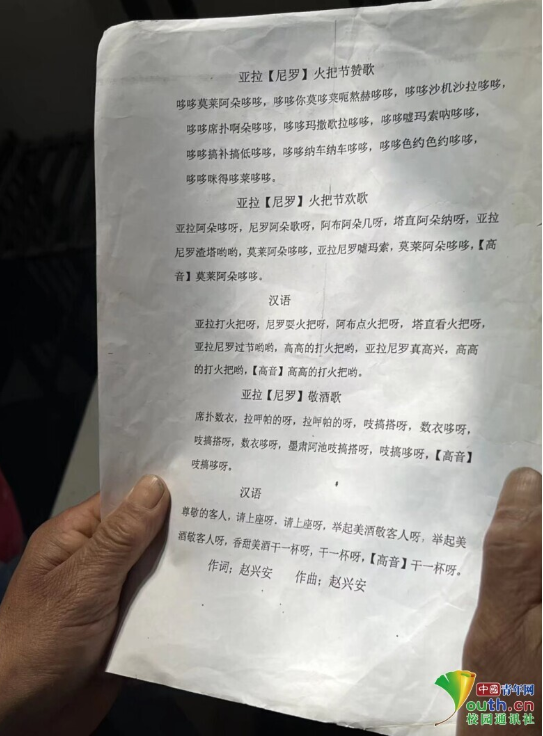 亚拉【尼罗】火把节赞歌
哆哆莫莱阿朵哆哆，哆哆你莫哆荚呃熬赫哆哆，哆哆沙机沙拉哆哆，
哆哆席扑啊朵哆哆，哆哆玛撒歌拉哆哆，哆哆嘘玛索呐哆哆，
哆哆搞补搞低哆哆，哆哆纳车纳车哆哆，哆哆色约色约哆哆，
哆哆咪得哆莱哆哆。
亚拉【尼罗】火把节欢歌
亚拉阿朵哆呀，尼罗阿朵歌呀，阿布阿朵几呀，塔直阿朵纳呀，亚拉
尼罗渣塔哟哟，莫莱阿朵哆哆，亚拉尼罗嘘玛索，莫莱阿朵哆哆，【高
音】莫莱阿朵哆哆。
汉语
亚拉打火把呀，尼罗耍火把呀，阿布点火把呀，塔直看火把呀，
亚拉尼罗过节哟哟，高高的打火把哟，亚拉尼罗真高兴，高高
的打火把哟，【高音】高高的打火把哟。
亚拉【尼罗】敬酒歌
席扑数衣，拉呷帕的呀，拉呷帕的呀，吱搞搭呀，数衣哆呀，
吱搞搭呀，数衣哆呀，墨肃阿池吱搞搭呀，吱搞哆呀，【高音】
吱搞哆呀。
汉语
尊敬的客人，请上座呀，请上座呀，举起美酒敬客人呀，举起美
酒敬客人呀，香甜美酒干一杯呀，干一杯呀，【高音】干一杯呀。
作词：赵兴安 作曲：赵兴安
中国青年网
youth.cn
校园通讯社